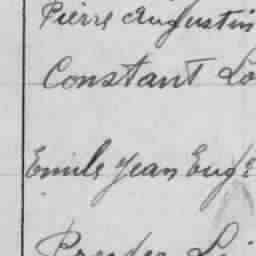 Pierre Augustin
Constant Lo
Emile Jean Eug